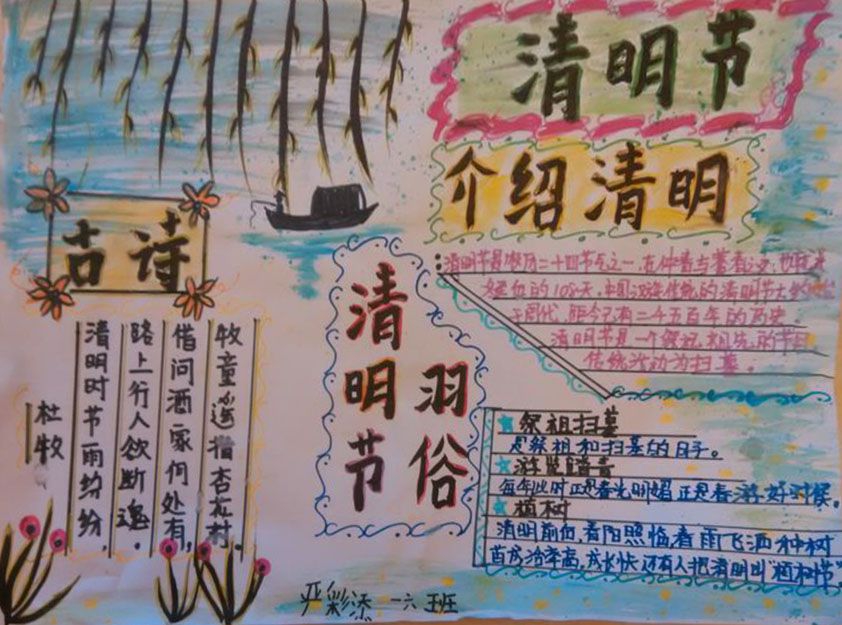 清明节
介绍清明
清明节是农历二十四节气之一,在仲春与暮春之交,也就是
的108天,中国汉族传统的清明节大约始
于周代,距今已有二千五百年的历史
清明节是一个祭祝祖先的节日
传统活动为扫墓。
古诗
杜牧
清明时节雨纷纷,
路上行人欲断魂。
借问酒家何处有,
牧童遥指杏花村。
清明节
羽俗
祭祖扫墓
是祭祖和扫墓的日子。
游览踏青
每年此时正是春光明媚正是春游好时候。
植树
清明前后,春阳照临,春雨飞洒种树
苗成活率高,成长快,还有人把清明叫"植树节"
严彩添 一六班